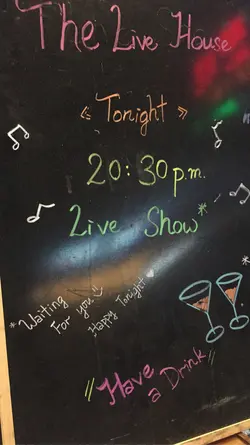 The Live House
« Tonight »
20:30 p.m.
Live Show*
*Waiting
For you
Happy Tonight
Have
a Drink